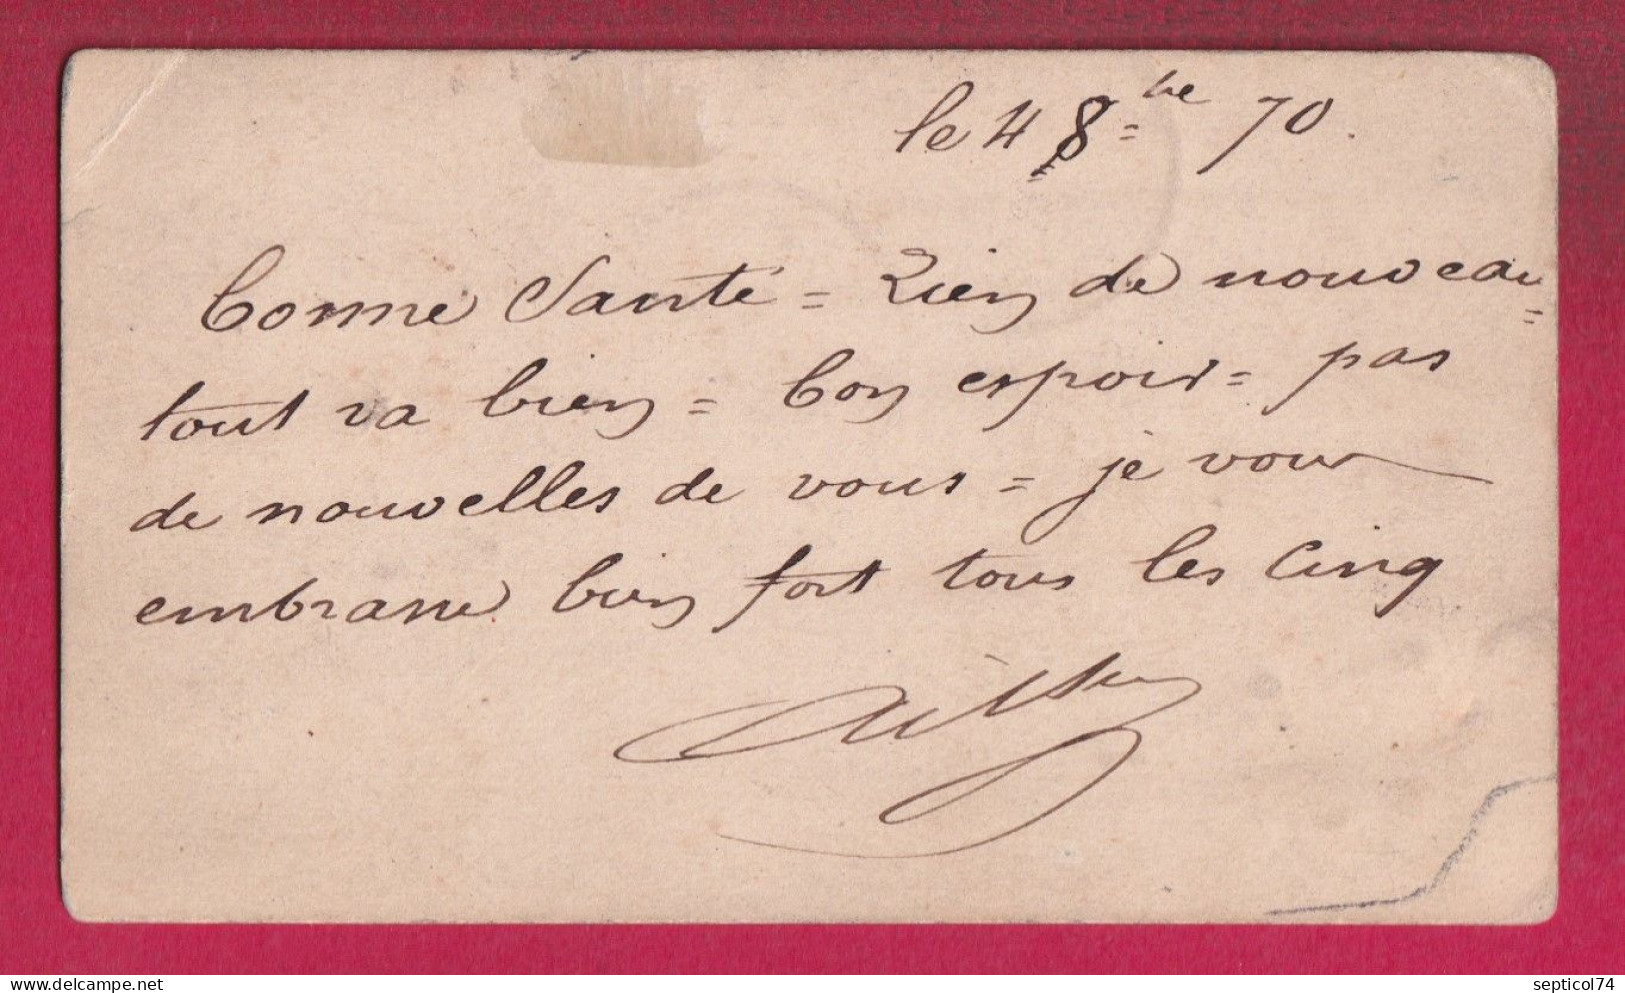 le 4 8=bre 70.
bonne Santé = Rien de nouveau =
tout va bien = bon espoir = pas
de nouvelles de vous = je vous
embrasse bien fort tous les Cinq
delcampe.net
septicol74